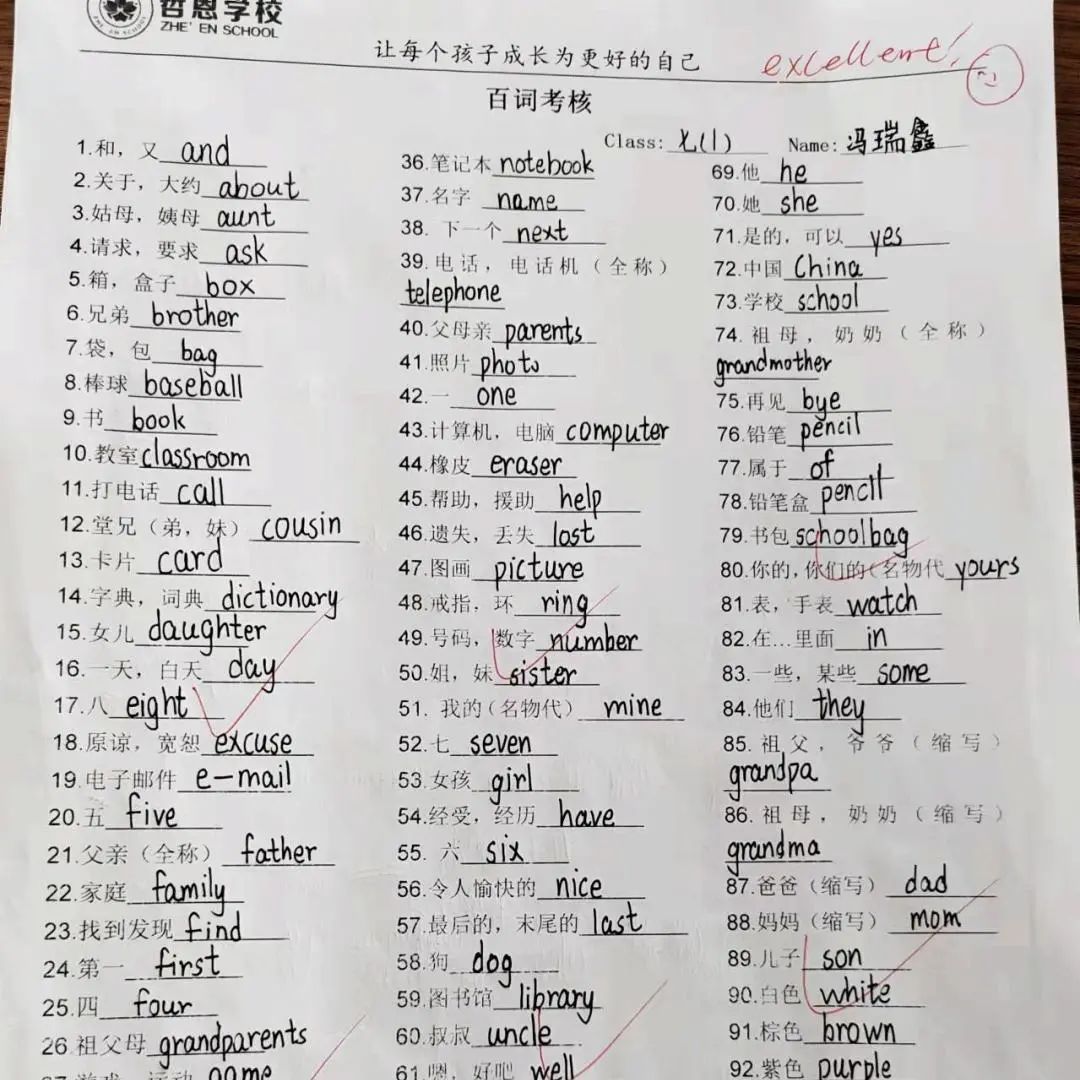 哲恩学校
ZHE' EN SCHOOL
让每个孩子成长为更好的自己
excellent!
百词考核
Class: 七(1) Name: 冯瑞鑫
1.和，又 and
2.关于，大约 about
3.姑母，姨母 aunt
4.请求，要求 ask
5.箱，盒子 box
6.兄弟 brother
7.袋，包 bag
8.棒球 baseball
9.书 book
10.教室 classroom
11.打电话 call
12.堂兄（弟，妹） cousin
13.卡片 card
14.字典，词典 dictionary
15.女儿 daughter
16.一天，白天 day
17.八 eight
18.原谅，宽恕 excuse
19.电子邮件 e-mail
20.五 five
21.父亲（全称） father
22.家庭 family
23.找到发现 find
24.第一 first
25.四 four
26.祖父母 grandparents
27.游戏，运动 game
36.笔记本 notebook
37.名字 name
38. 下一个 next
39.电话，电话机（全称）
telephone
40.父母亲 parents
41.照片 photo
42.一 one
43.计算机，电脑 computer
44.橡皮 eraser
45.帮助，援助 help
46.遗失，丢失 lost
47.图画 picture
48.戒指，环 ring
49.号码，数字 number
50.姐，妹 sister
51. 我的（名物代） mine
52.七 seven
53.女孩 girl
54.经受，经历 have
55. 六 six
56.令人愉快的 nice
57.最后的，末尾的 last
58.狗 dog
59.图书馆 library
60.叔叔 uncle
61.嗯，好吧 well
69.他 he
70.她 she
71.是的，可以 yes
72.中国 China
73.学校 school
74. 祖母，奶奶（全称）
grandmother
75.再见 bye
76.铅笔 pencil
77.属于 of
78.铅笔盒 pencil
79.书包 schoolbag
80.你的，你们的（名物代 yours
81.表，手表 watch
82.在…里面 in
83.一些，某些 some
84.他们 they
85. 祖父，爷爷（缩写）
grandpa
86. 祖母，奶奶（缩写）
grandma
87.爸爸（缩写） dad
88.妈妈（缩写） mom
89.儿子 son
90.白色 white
91.棕色 brown
92.紫色 purple